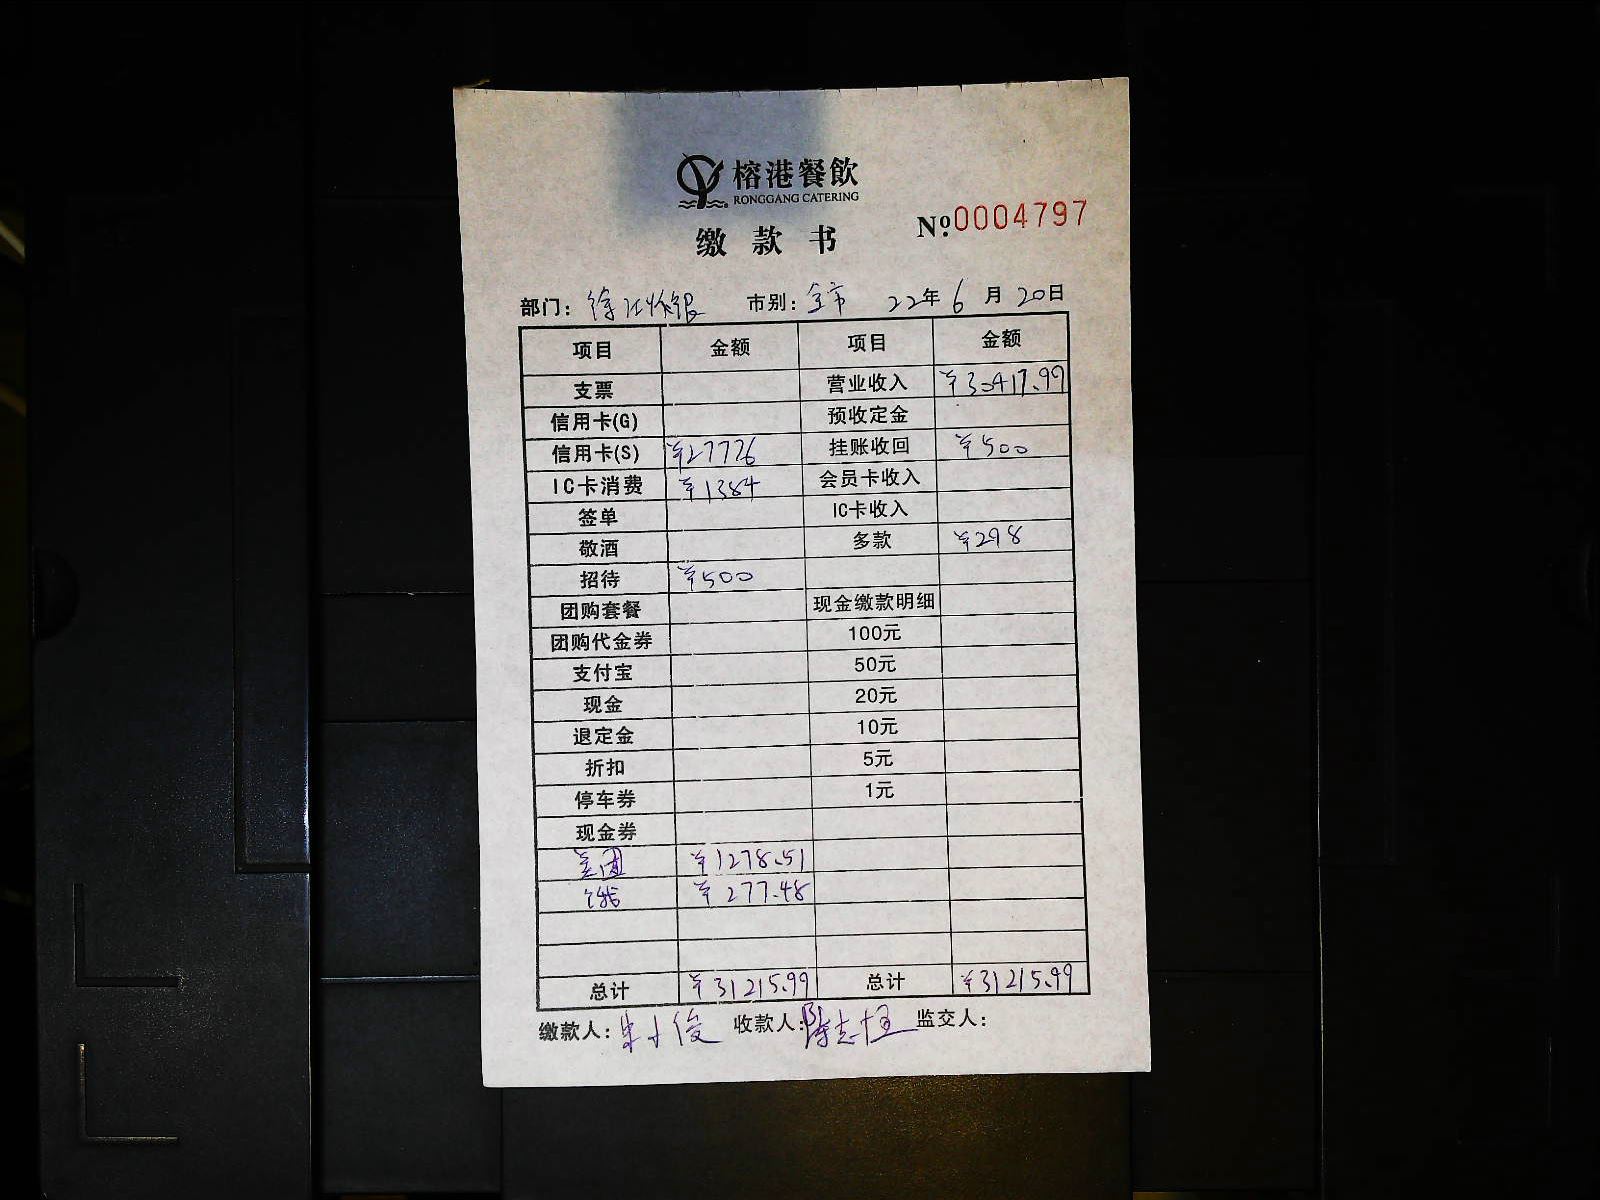 榕港餐飲
RONGGANG CATERING
缴款书 №0004797
部门: 徐汇收银 市别: 全市 22年6月20日
项目 金额 项目 金额
支票 营业收入 ¥30417.99
信用卡(G) 预收定金
信用卡(S) ¥27776 挂账收回 ¥500
IC卡消费 ¥1384 会员卡收入
签单 IC卡收入
敬酒 多款 ¥298
招待 ¥500
团购套餐 现金缴款明细
团购代金券 100元
支付宝 50元
现金 20元
退定金 10元
折扣 5元
停车券 1元
现金券
美团 ¥1278.51
饿 ¥277.48
总计 ¥31215.99 总计 ¥31215.99
缴款人: 朱小俊 收款人: 陈志恒 监交人: